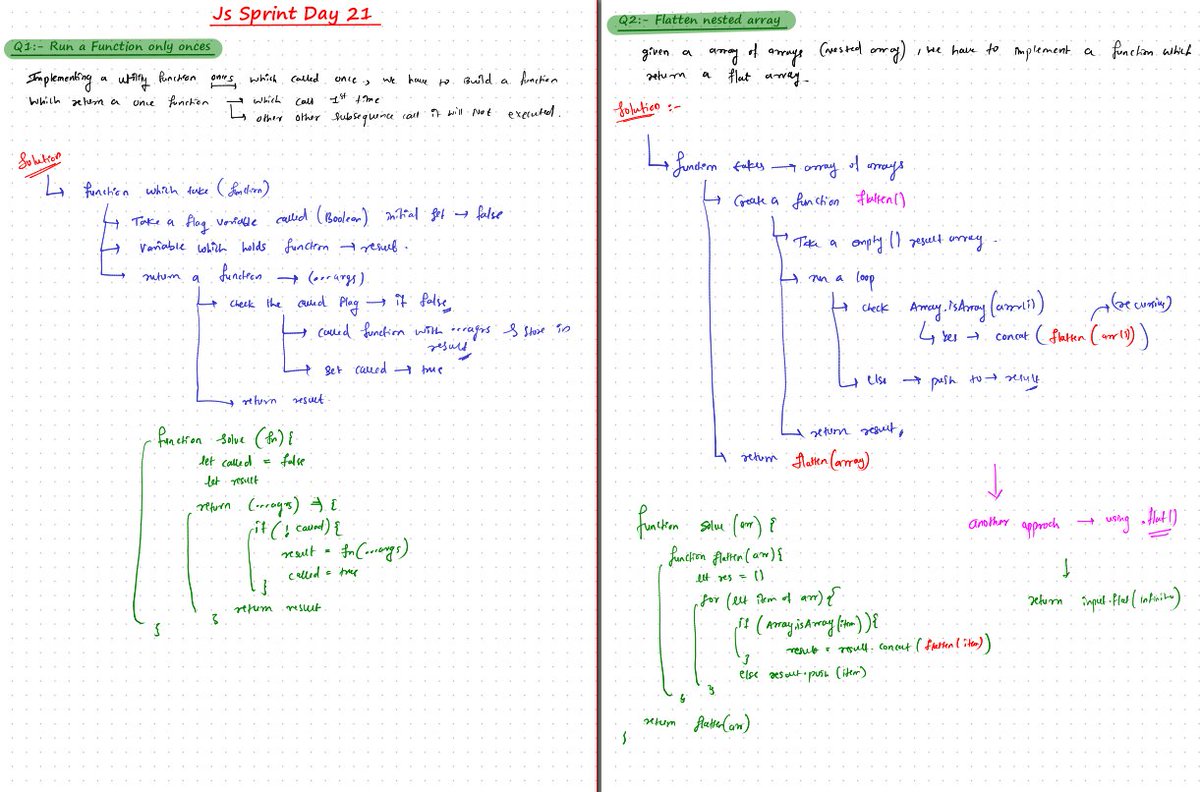 Js Sprint Day 21
Q1:- Run a Function only onces
Implementing a utility function onces which called once, we have to build a function
which return a once function → which call 1st time
→ other other subsequence call it will not executed.
Solution
→ function which take (function)
→ Take a flag variable called (Boolean) initial set → false
→ variable which holds function → result.
→ return a function → (...args)
→ check the called flag → if false
→ called function with ...agrs & store in
result
→ set called → true
→ return result.
function solve (fn) {
let called = false
let result
return (...agrs) => {
if (! called) {
result = fn(...args)
called = true
}
return result
}
}
Q2:- Flatten nested array
given a array of arrays (nested array), we have to implement a function which
return a flat array.
Solution :-
→ function takes → array of arrays
→ Create a function flatten()
→ Take a empty () result array.
→ run a loop
→ check Array.isArray(arr(i)) → (recursive)
→ Yes → concat (flatten (arr(i)))
→ else → push to → result
→ return result,
→ return flatten(array)
another approch → using .flat()
return input.flat(infinite)
function solve (arr) {
function flatten (arr) {
let res = []
for (let item of arr) {
if (Array.isArray(item)) {
result = result.concat (flatten(item))
}
else result.push (item)
}
}
return flatten(arr)
}